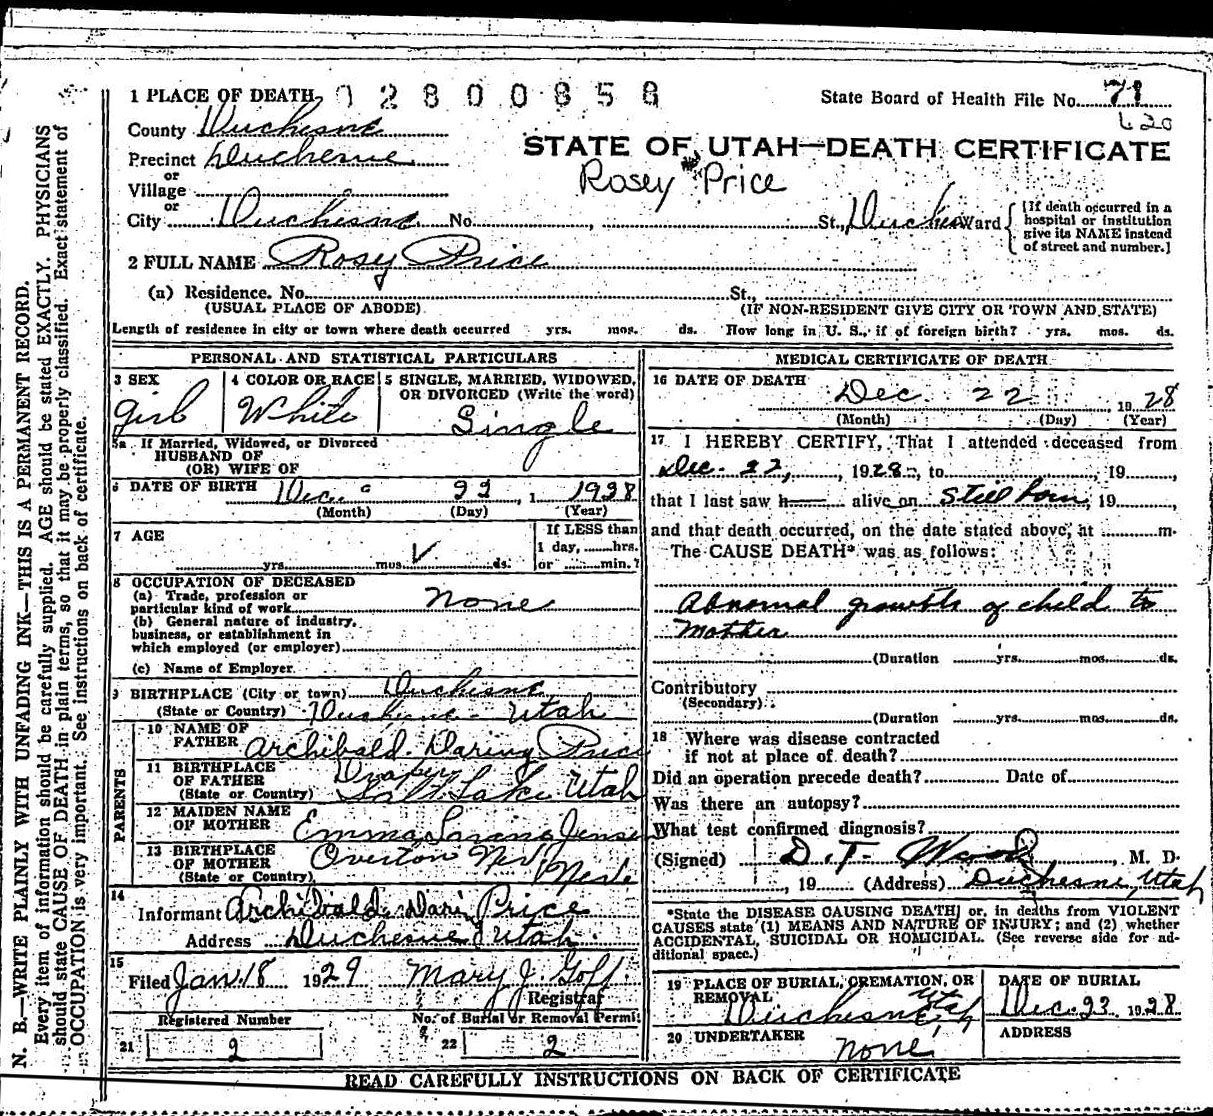 1 PLACE OF DEATH 92800858
State Board of Health File No. 71
620
County Duchesne
STATE OF UTAH—DEATH CERTIFICATE
Precinct Duchesne
or
Village
Rosey Price
or
City Duchesne No. , St., Duchesne Ward
[If death occurred in a
hospital or institution
give its NAME instead
of street and number.]
2 FULL NAME Rosy Price
(a) Residence. No. St.,
(USUAL PLACE OF ABODE) (IF NON-RESIDENT GIVE CITY OR TOWN AND STATE)
Length of residence in city or town where death occurred yrs. mos. ds. How long in U. S., if of foreign birth? yrs. mos. ds.
PERSONAL AND STATISTICAL PARTICULARS
3 SEX 4 COLOR OR RACE 5 SINGLE, MARRIED, WIDOWED,
OR DIVORCED (Write the word)
girl White Single
5a If Married, Widowed, or Divorced
HUSBAND OF
(OR) WIFE OF
6 DATE OF BIRTH Dec. 22, 1928
(Month) (Day) (Year)
7 AGE If LESS than
1 day, hrs.
yrs. mos. ds. or min.?
8 OCCUPATION OF DECEASED
(a) Trade, profession or
particular kind of work none
(b) General nature of industry,
business, or establishment in
which employed (or employer)
(c) Name of Employer
9 BIRTHPLACE (City or town) Duchesne
(State or Country) Duchesne - Utah
PARENTS
10 NAME OF
FATHER Archibald Daring Price
11 BIRTHPLACE
OF FATHER Draper
(State or Country) Salt Lake Utah
12 MAIDEN NAME
OF MOTHER Emma Jensen
13 BIRTHPLACE
OF MOTHER Overton Nev
(State or Country)
14
Informant Archibald Price
Address Duchesne Utah.
15
Filed Jan 18 1929 Mary J. Goff
Registrar
Registered Number No. of Burial or Removal Permit
21 2 22 2
MEDICAL CERTIFICATE OF DEATH
16 DATE OF DEATH
Dec. 22, 1928
(Month) (Day) (Year)
17 I HEREBY CERTIFY, That I attended deceased from
Dec. 22, 1928, to , 19 ,
that I last saw h alive on Still born, 19 ,
and that death occurred, on the date stated above, at m.
The CAUSE DEATH* was as follows:
Abnormal growth of child to
mother
(Duration yrs. mos. ds.
Contributory
(Secondary)
(Duration yrs. mos. ds.
18 Where was disease contracted
if not at place of death?
Did an operation precede death? Date of
Was there an autopsy?
What test confirmed diagnosis?
(Signed) D. T. Wood, M. D.
, 19 (Address) Duchesne, Utah
*State the DISEASE CAUSING DEATH, or, in deaths from VIOLENT
CAUSES state (1) MEANS AND NATURE OF INJURY; and (2) whether
ACCIDENTAL, SUICIDAL OR HOMICIDAL. (See reverse side for ad-
ditional space.)
19 PLACE OF BURIAL, CREMATION, OR DATE OF BURIAL
REMOVAL Duchesne Utah Dec. 23 1928
20 UNDERTAKER ADDRESS
none
READ CAREFULLY INSTRUCTIONS ON BACK OF CERTIFICATE
N. B.—WRITE PLAINLY WITH UNFADING INK—THIS IS A PERMANENT RECORD.
Every item of information should be carefully supplied. AGE should be stated EXACTLY. PHYSICIANS
should state CAUSE OF DEATH in plain terms, so that it may be properly classified. Exact statement of
OCCUPATION is very important. See instructions on back of certificate.